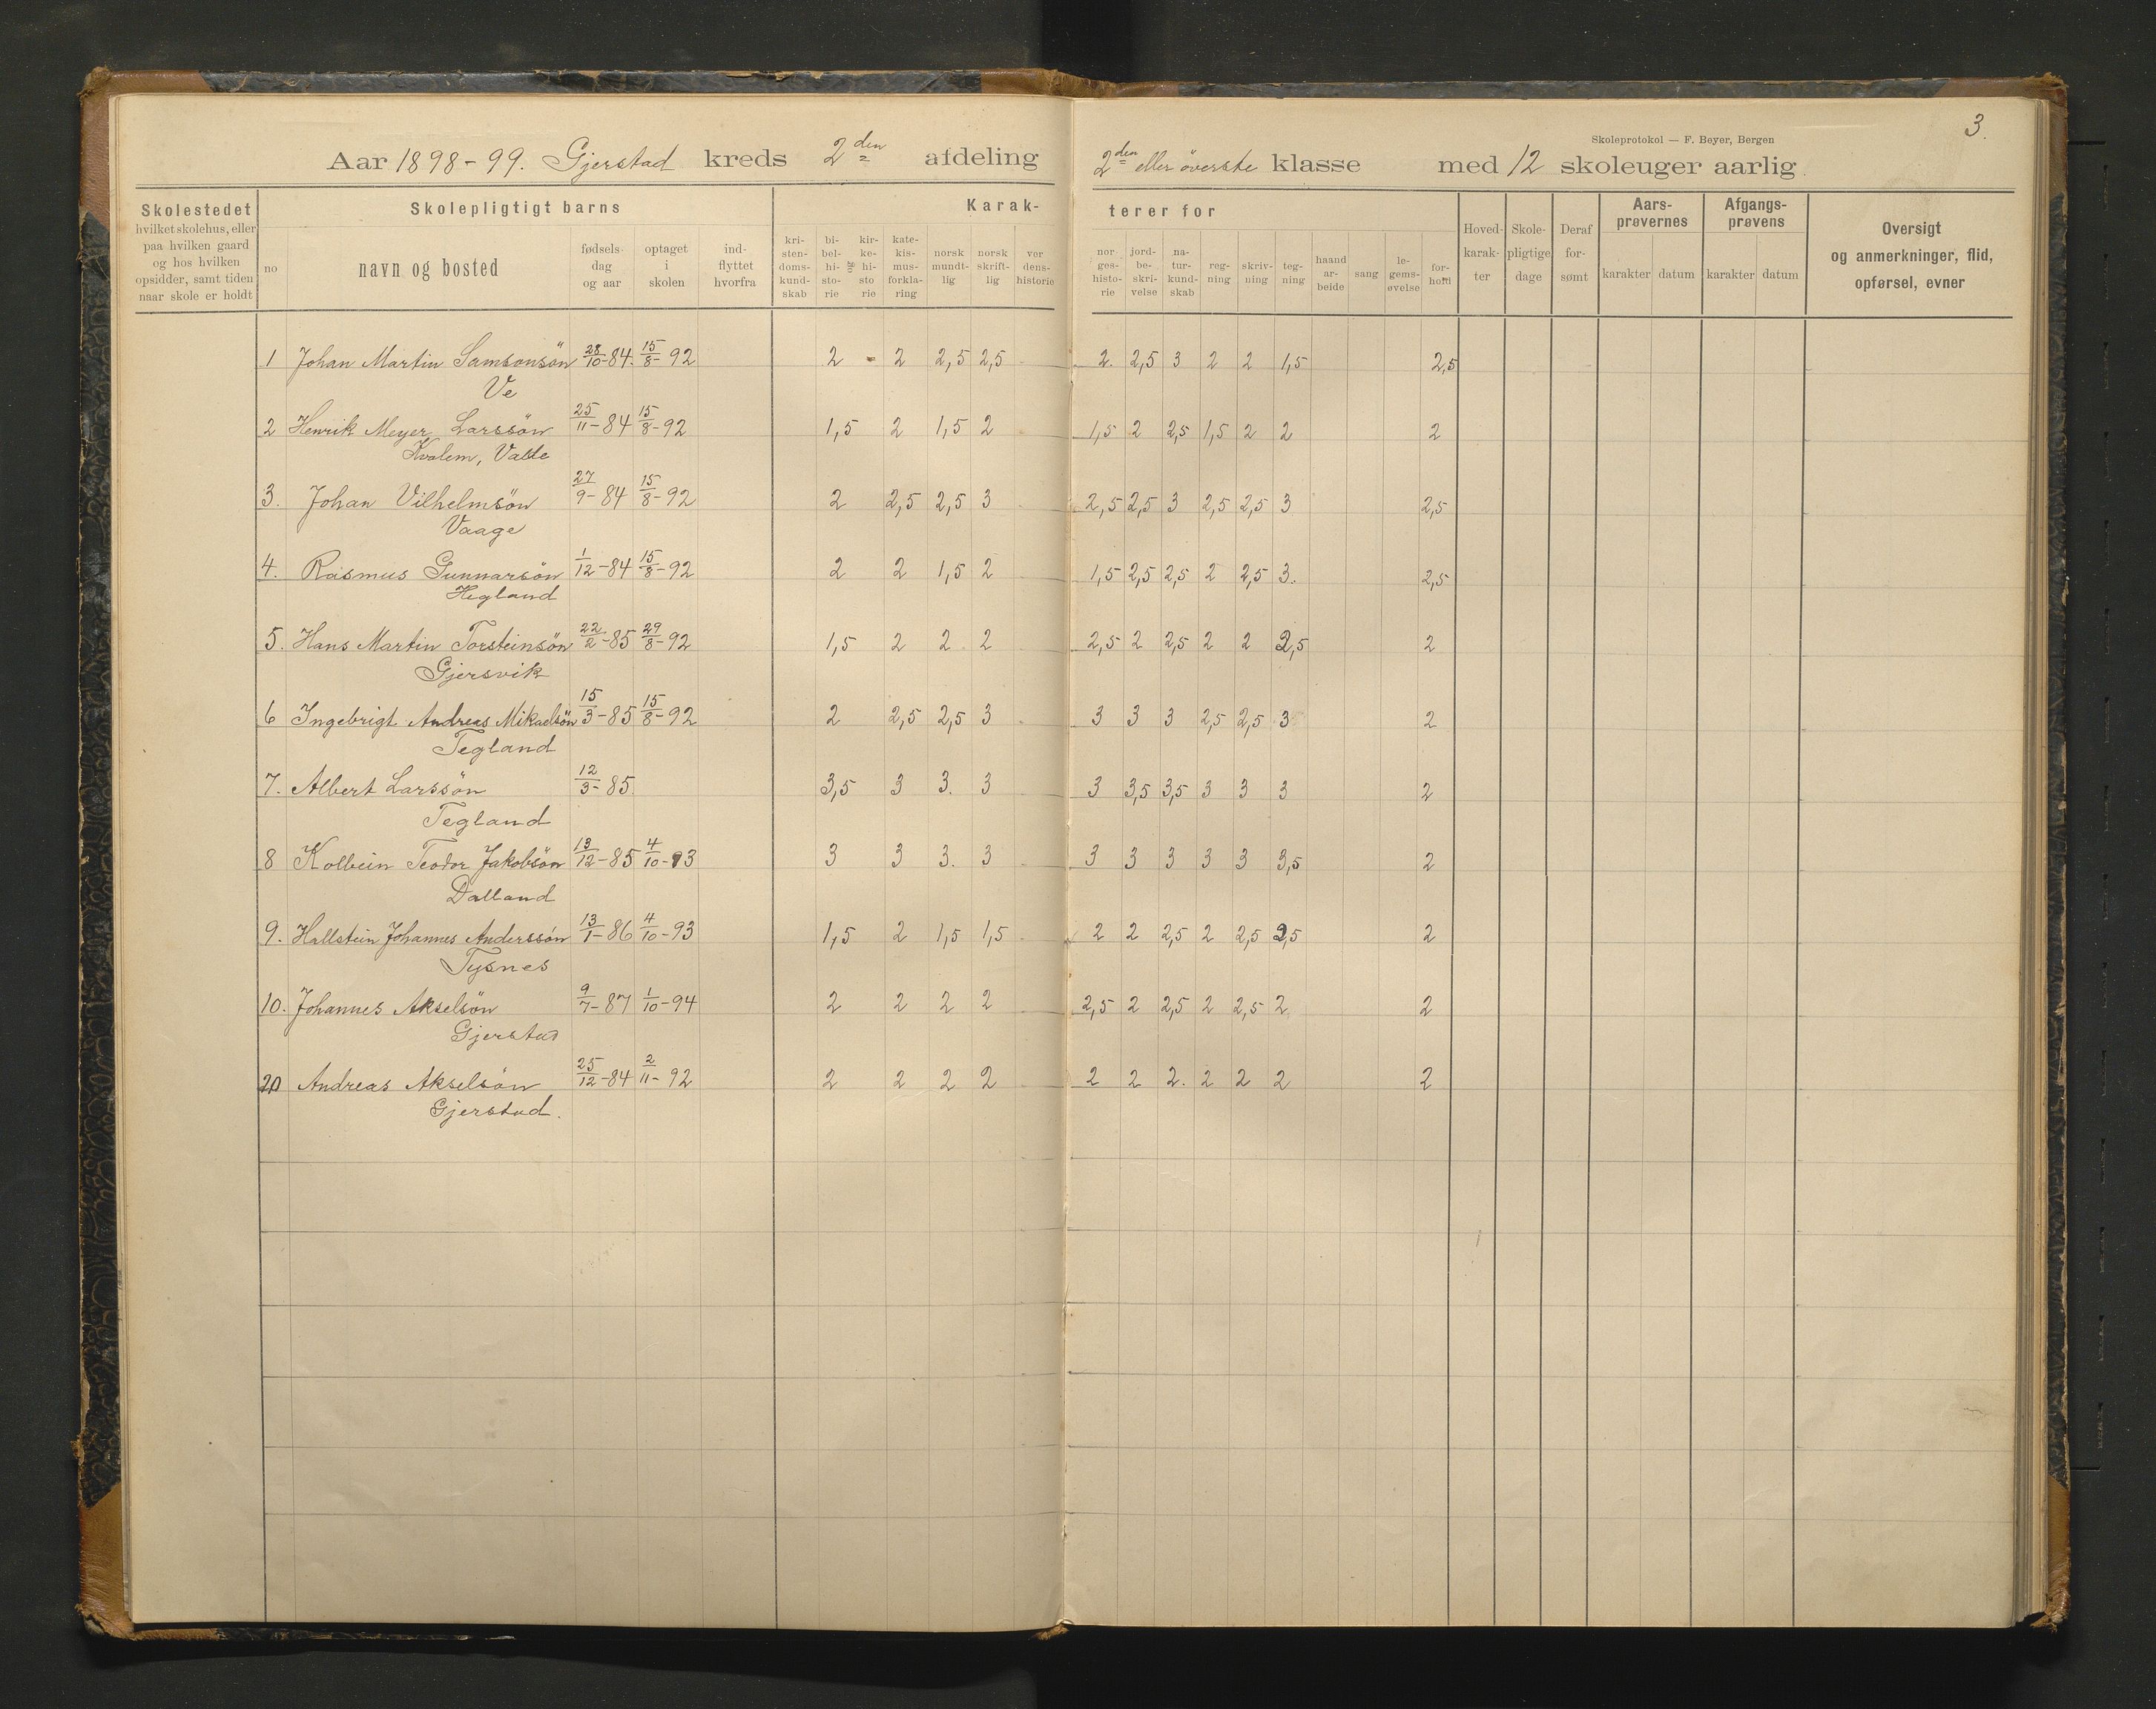 Skoleprotokol — F. Beyer, Bergen
3.
Aar 1898-99. Gjerstad kreds 2den afdeling 2den eller överste klasse med 12 skoleuger aarlig
Skolestedet hvilket skolehus, eller paa hvilken gaard og hos hvilken opsidder, samt tiden naar skole er holdt
Skolepligtigt barns
no
navn og bosted
fødsels-dag og aar
optaget i skolen
ind-flyttet hvorfra
Karak-terer for
kri-sten-doms-kund-skab
bi-bel-hi-sto-rie
og
kir-ke-hi-sto rie
kate-kis-mus-forkla-ring
norsk mundt-lig
norsk skrift-lig
ver dens-historie
nor ges-histo-rie
jord-be-skri-velse
na-tur-kund-skab
reg-ning
skriv-ning
teg-ning
haand ar-beide
sang
le-gems-øvelse
for-hold
Hoved-karak-ter
Skole-pligtige dage
Deraf for-sømt
Aars-prøvernes
karakter datum
Afgangs-prøvens
karakter datum
Oversigt og anmerkninger, flid, opførsel, evner
1 Johan Martin Samsonsön 28/10-84. 15/8-92 2 - 2 2,5 2,5 2. 2,5 3 2 2 1,5 2,5
Ve
2 Henrik Meyer Larssön 25/11-84 15/8-92 1,5 2 1,5 2 1,5 2 2,5 1,5 2 2 2
Kvalem, Valle
3. Johan Vilhelmsön 27/9-84 15/8-92 2 2,5 2,5 3 2,5 2,5 3 2,5 2,5 3 2,5
Vaage
4. Rasmus Gunnarsön 1/12-84 15/8-92 2 2 1,5 2 1,5 2,5 2,5 2 2,5 3. 2,5
Hegland
5. Hans Martin Torsteinsön 22/2-85 29/8-92 1,5 2 2 2 2,5 2 2,5 2 2 2,5 2
Gjersvik
6 Ingebrigt Andreas Mikaelsön 15/3-85 15/8-92 2 2,5 2,5 3 3 3 3 2,5 2,5 3 2
Tegland
7. Albert Larssön 12/3-85. 3,5 3 3. 3 3 3,5 3,5 3 3 3 2
Tegland
8 Kolbein Teodor Jakobsön 13/12-85 4/10-93 3 3 3. 3 3 3 3 3 3 3,5 2
Dalland
9. Hallstein Johannes Anderssön 13/1-86 4/10-93 1,5 2 1,5 1,5 2 2 2,5 2 2,5 2,5 2
Tysnes
10. Johannes Akselsön 9/7-87 1/10-94 2 2 2 2 2,5 2 2,5 2 2,5 2 2
Gjerstad
20 Andreas Akselsön 25/12-84 2/11-92 2 2 2 2 2 2 2. 2 2 2 2
Gjerstad.